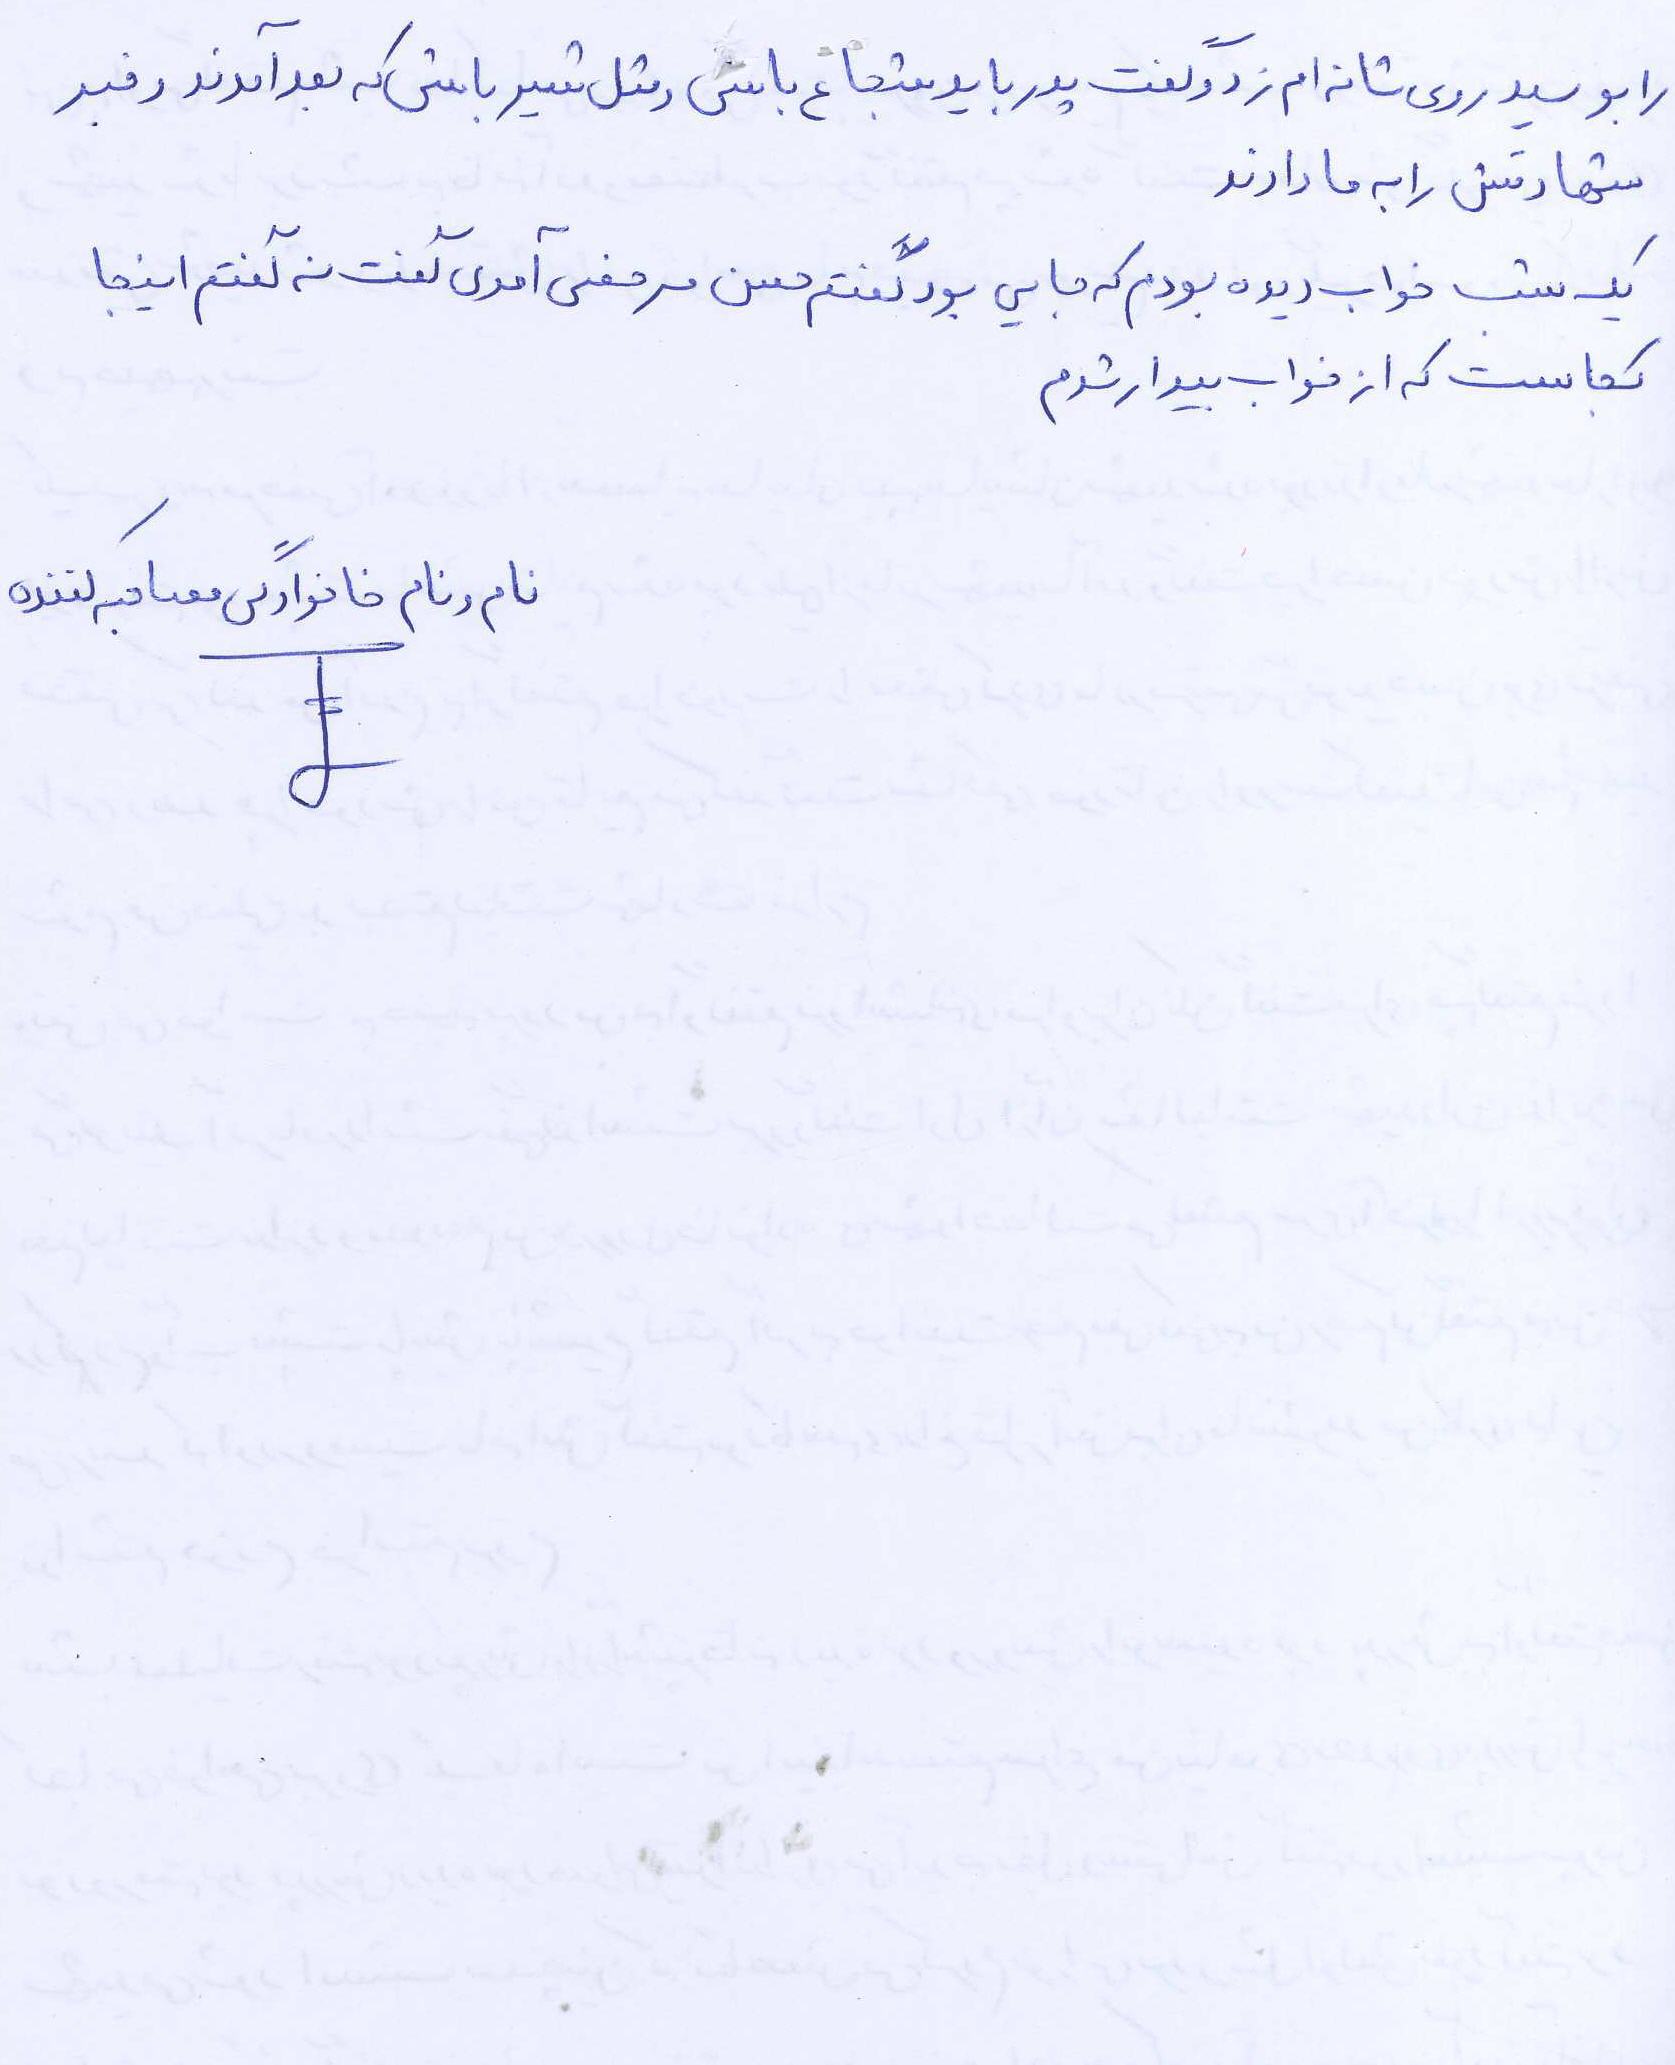 را بوسید روی شانه ام زد و گفت پدر باید شجاع باشی و مثل شیر باشی که بعد آمدند و خبر
شهادتش را به ما دادند
یک شب خواب دیده بودم که جایی بود گفتم حسن مرخصی آمدی گفت نه گفتم اینجا
کجاست که از خواب بیدار شدم
نام و نام خانوادگی مصاحبه کننده